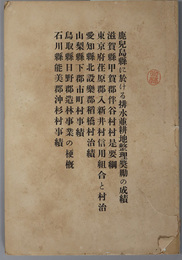 鹿兒島縣に於ける排水並耕地整理奬勵の成績
滋賀縣甲賀郡伴谷村村是要綱
東京府荏原郡入新井村信用組合と村治
愛知縣北設樂郡稻橋村治績
山梨縣下部市町村事績
鳥取縣日野郡造林事業の梗概
石川縣能美郡沖杉村事績